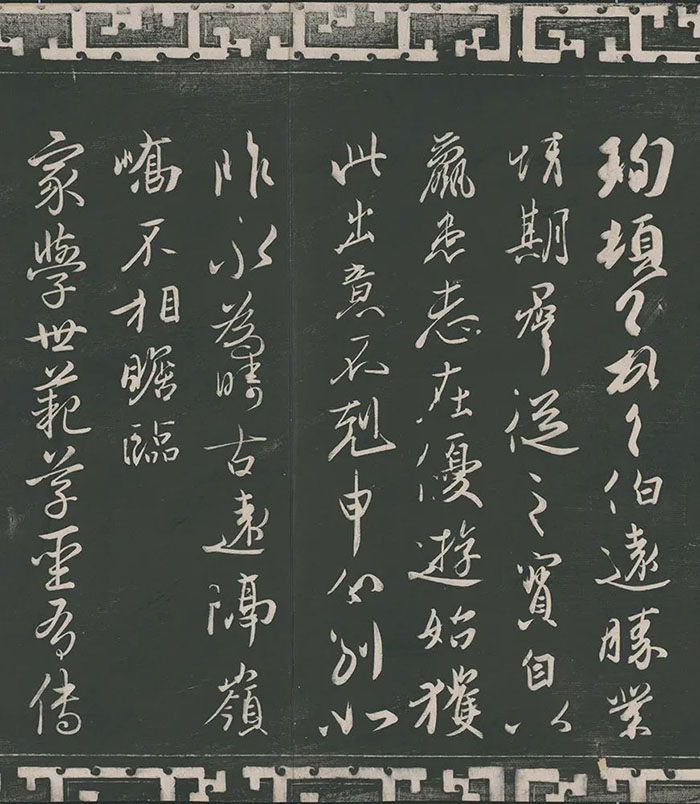 珣頓〻首〻伯遠勝業
情期羣從之寶自以
羸患志在優遊始獲
此出意不剋申分別如
昨永為疇古遠隔嶺
嶠不相瞻臨
家學世範草聖有傳